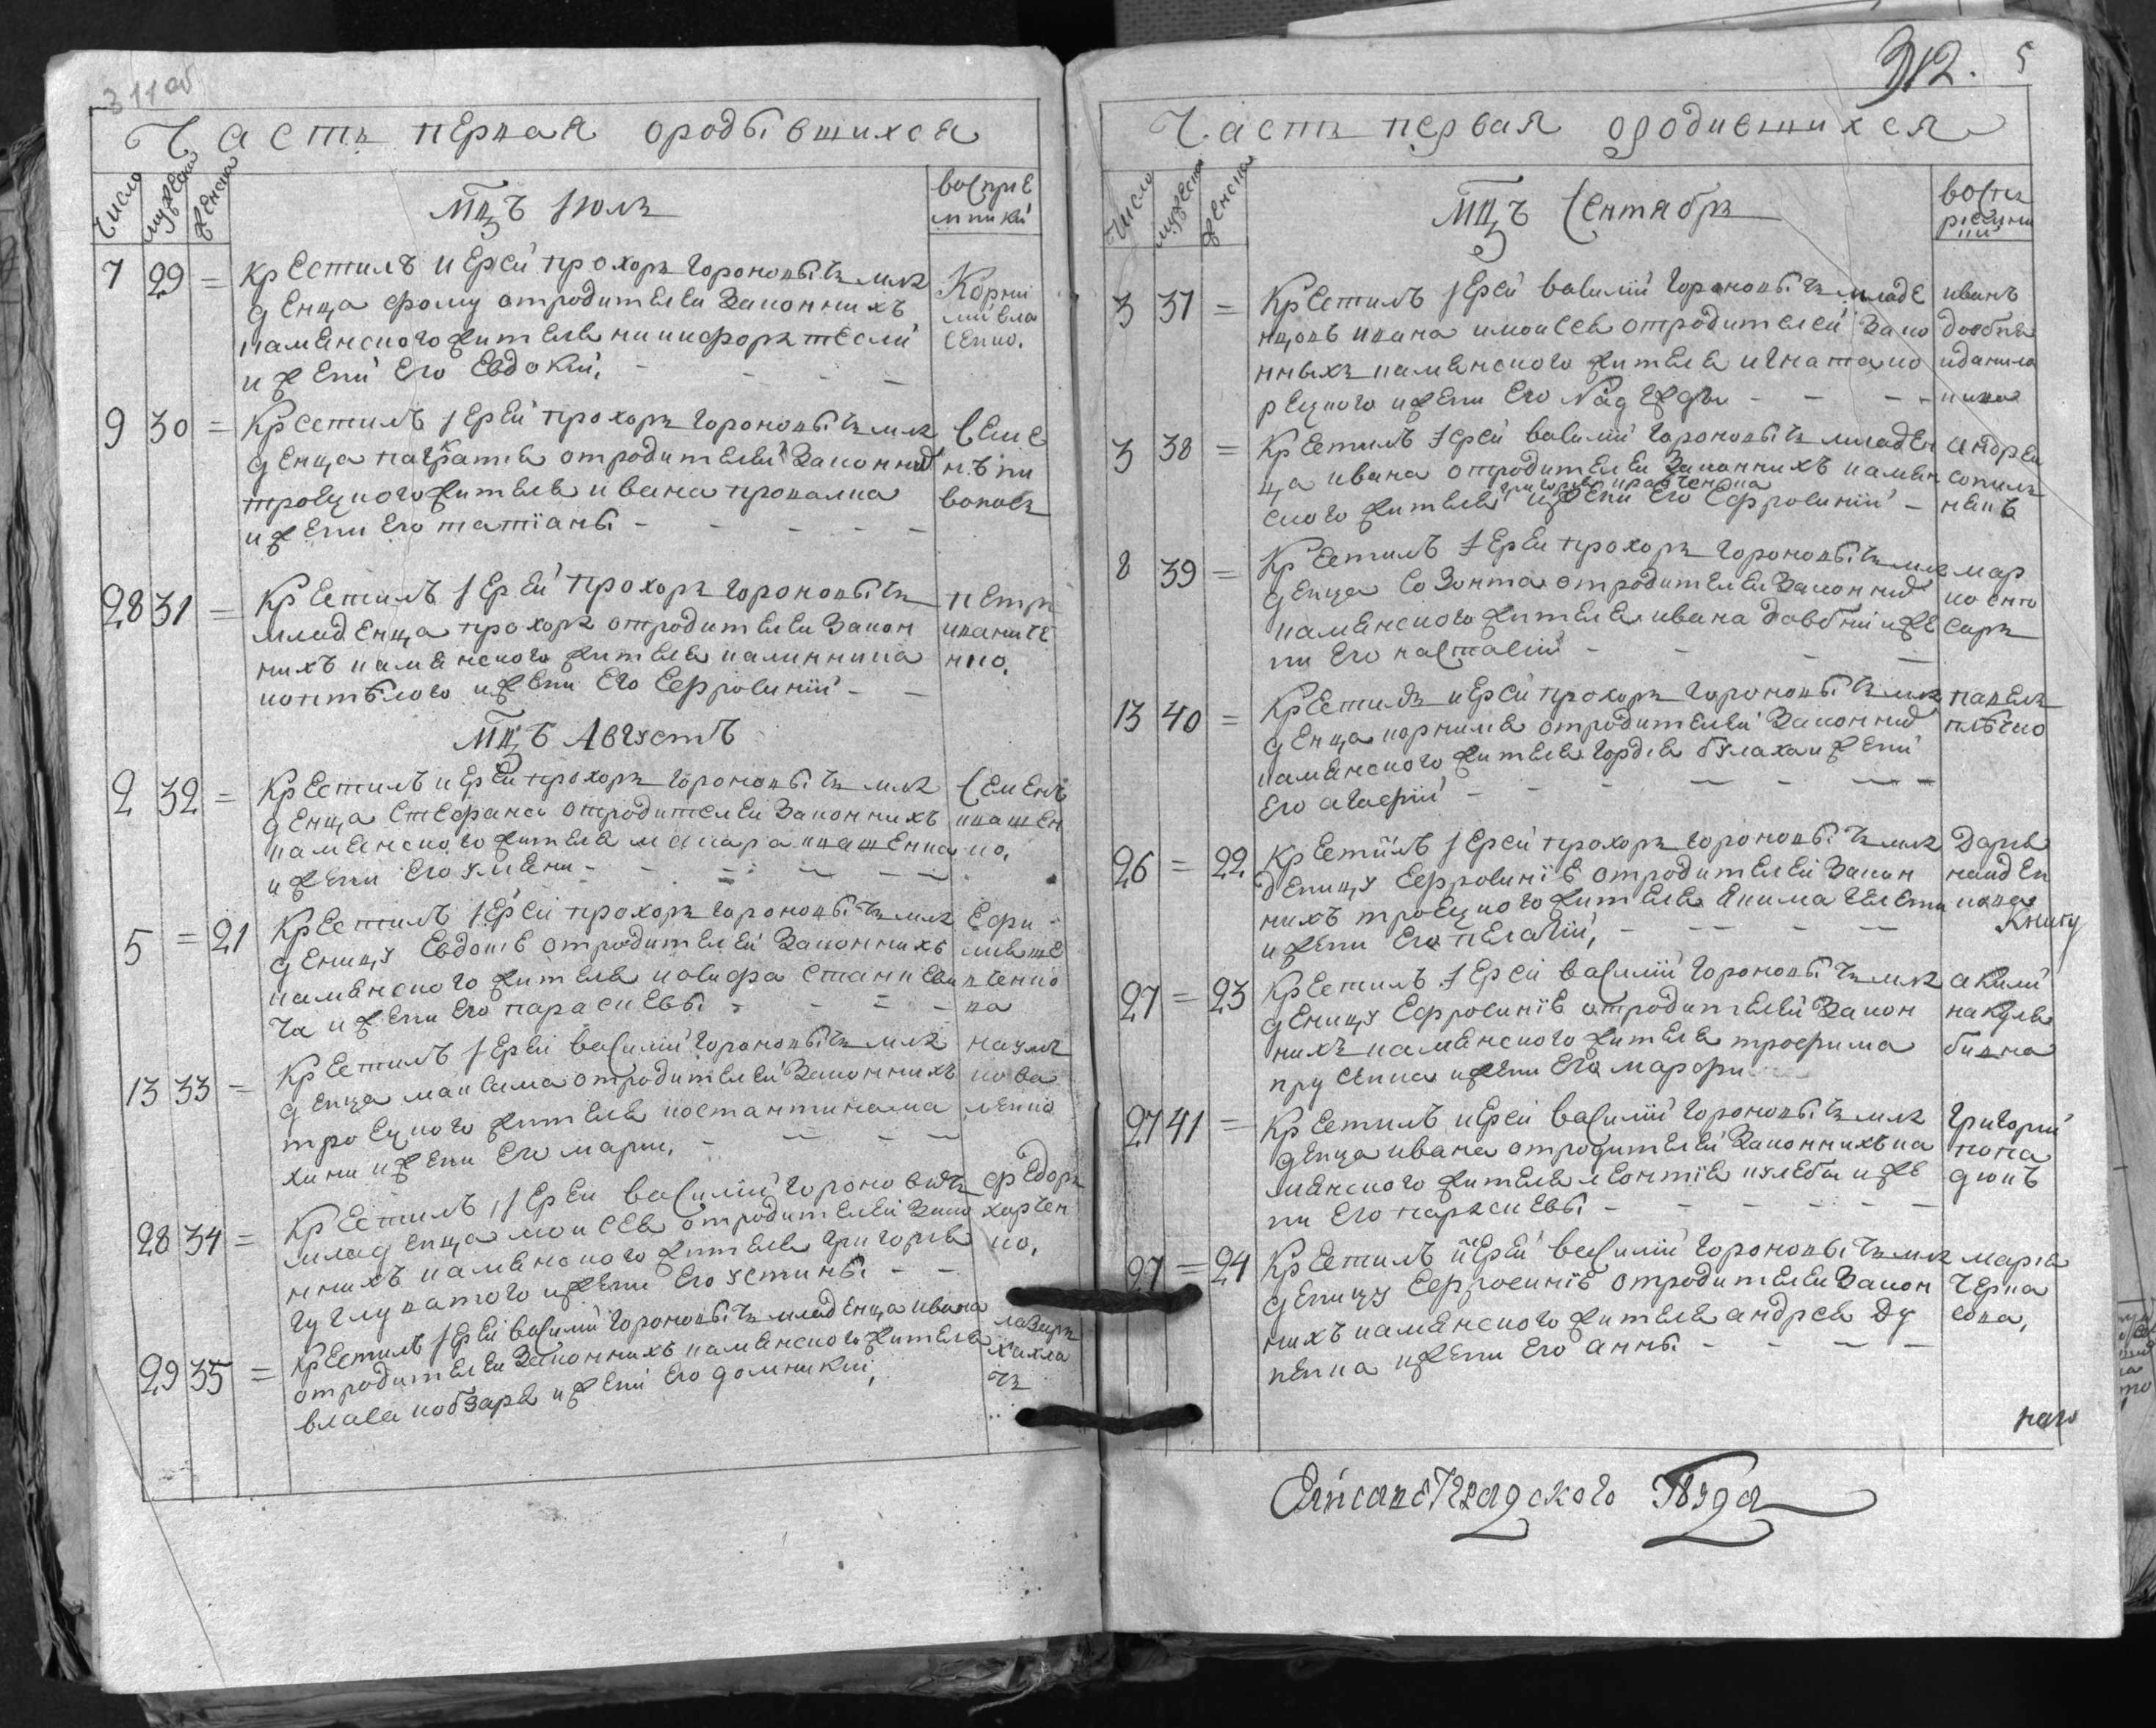 311об
Часть перꙗая о родывшихся
Число мужеска женска
Мцъ Iюль
восприе
мники
7 29 = крестилъ иерей прохоръ гороновычъ мла
денца фому от родителей законнихъ
каменского жителя никифоръ тесли
и жени его Евдокии,
Корни
лий вла
сенко.
9 30 = крестилъ Iерей прохоръ гороновычъ мла
денца панкратия от родителей законних
троецкого жителя ивана
и жени его татіаны
28 31 = крестилъ Iерей прохоръ гороновычъ
младенца прохоръ от родителей закон
нихъ каменского жителя калинника
контылого и жени его Еѳросинии
петръ
иваниче
нко.
Мцъ Августъ
2 32 = крестилъ иерей прохоръ гороновычъ мла
денца Стефана от родителей законнихъ
каменского жителя макара ивашенка
и жени его улияни
Семенъ
ивашен
ко.
5 = 21 крестилъ Iерей прохоръ гороновычъ мла
деницу Евдокию от родителей законнихъ
каменского жителя иосифа Станкеви
ча и жени его параскевы
13 33 = крестилъ Iерей василий гороновычъ мла
денца максима от родителей законнихъ
троецкого жителя костантина
хини и жени его марии,
наумъ
кова
ленко
28 34 = крестилъ Iерей василий гороновичъ
младенца моисея от родителей зако
ннихъ каменского жителя григория
и жени его устины
федоръ
харчен
ко,
29 35 = крестилъ Iерей василий гороновычъ младенца ивана
от родителей законнихъ каменского жителя
власа кобзаря и жени его домникии,
лазаръ
312. 5
Часть первая о родившихся
Число мужеска женска
Мцъ Сентябрь
3 37 = крестилъ Iерей василий гороновычъ младе
нцовъ ивана и моисея от родителей зако
нныхъ каменского жителя игната ко
рецкого и жени его надежды
иванъ
довбня
и данила
3 38 = крестилъ Iерей василий гороновычъ младен
ца ивана от родителей законнихъ камен
ского жителя григория кравченка и жени его Еѳросинии
андрей
8 39 = крестилъ Iерей прохоръ гороновычъ мла
денца Созонта от родителей законних
каменского жителя ивана довбни и же
ни его настасии
мар
ко сто
13 40 = крестилъ иерей прохоръ гороновычъ мла
денца корнилия от родителей законних
каменского жителя гордия булаха и жени
его агафии
павелъ
26 = 22 крестилъ Iерей прохоръ гороновычъ мла
деницу Еѳросиние от родителей закон
нихъ троецкого жителя якима
и жени его пелагии,
Дария
найден
кова
Книгу
27 = 23 крестилъ Iерей василий гороновычъ мла
деницу Еѳросиние от родителей закон
нихъ каменского жителя трофима
прусенка и жени его марфи
27 41 = крестилъ иерей василий гороновычъ мла
денца ивана от родителей законнихъ ка
менского жителя леонтия кулебы и же
ни его параскевы
григорий
27 = 24 крестилъ иерей василий гороновычъ мла
деницу Еѳросиние от родителей закон
нихъ каменского жителя андрея ду
пенка и жени его анны
мария
Елисаветградского Уезда